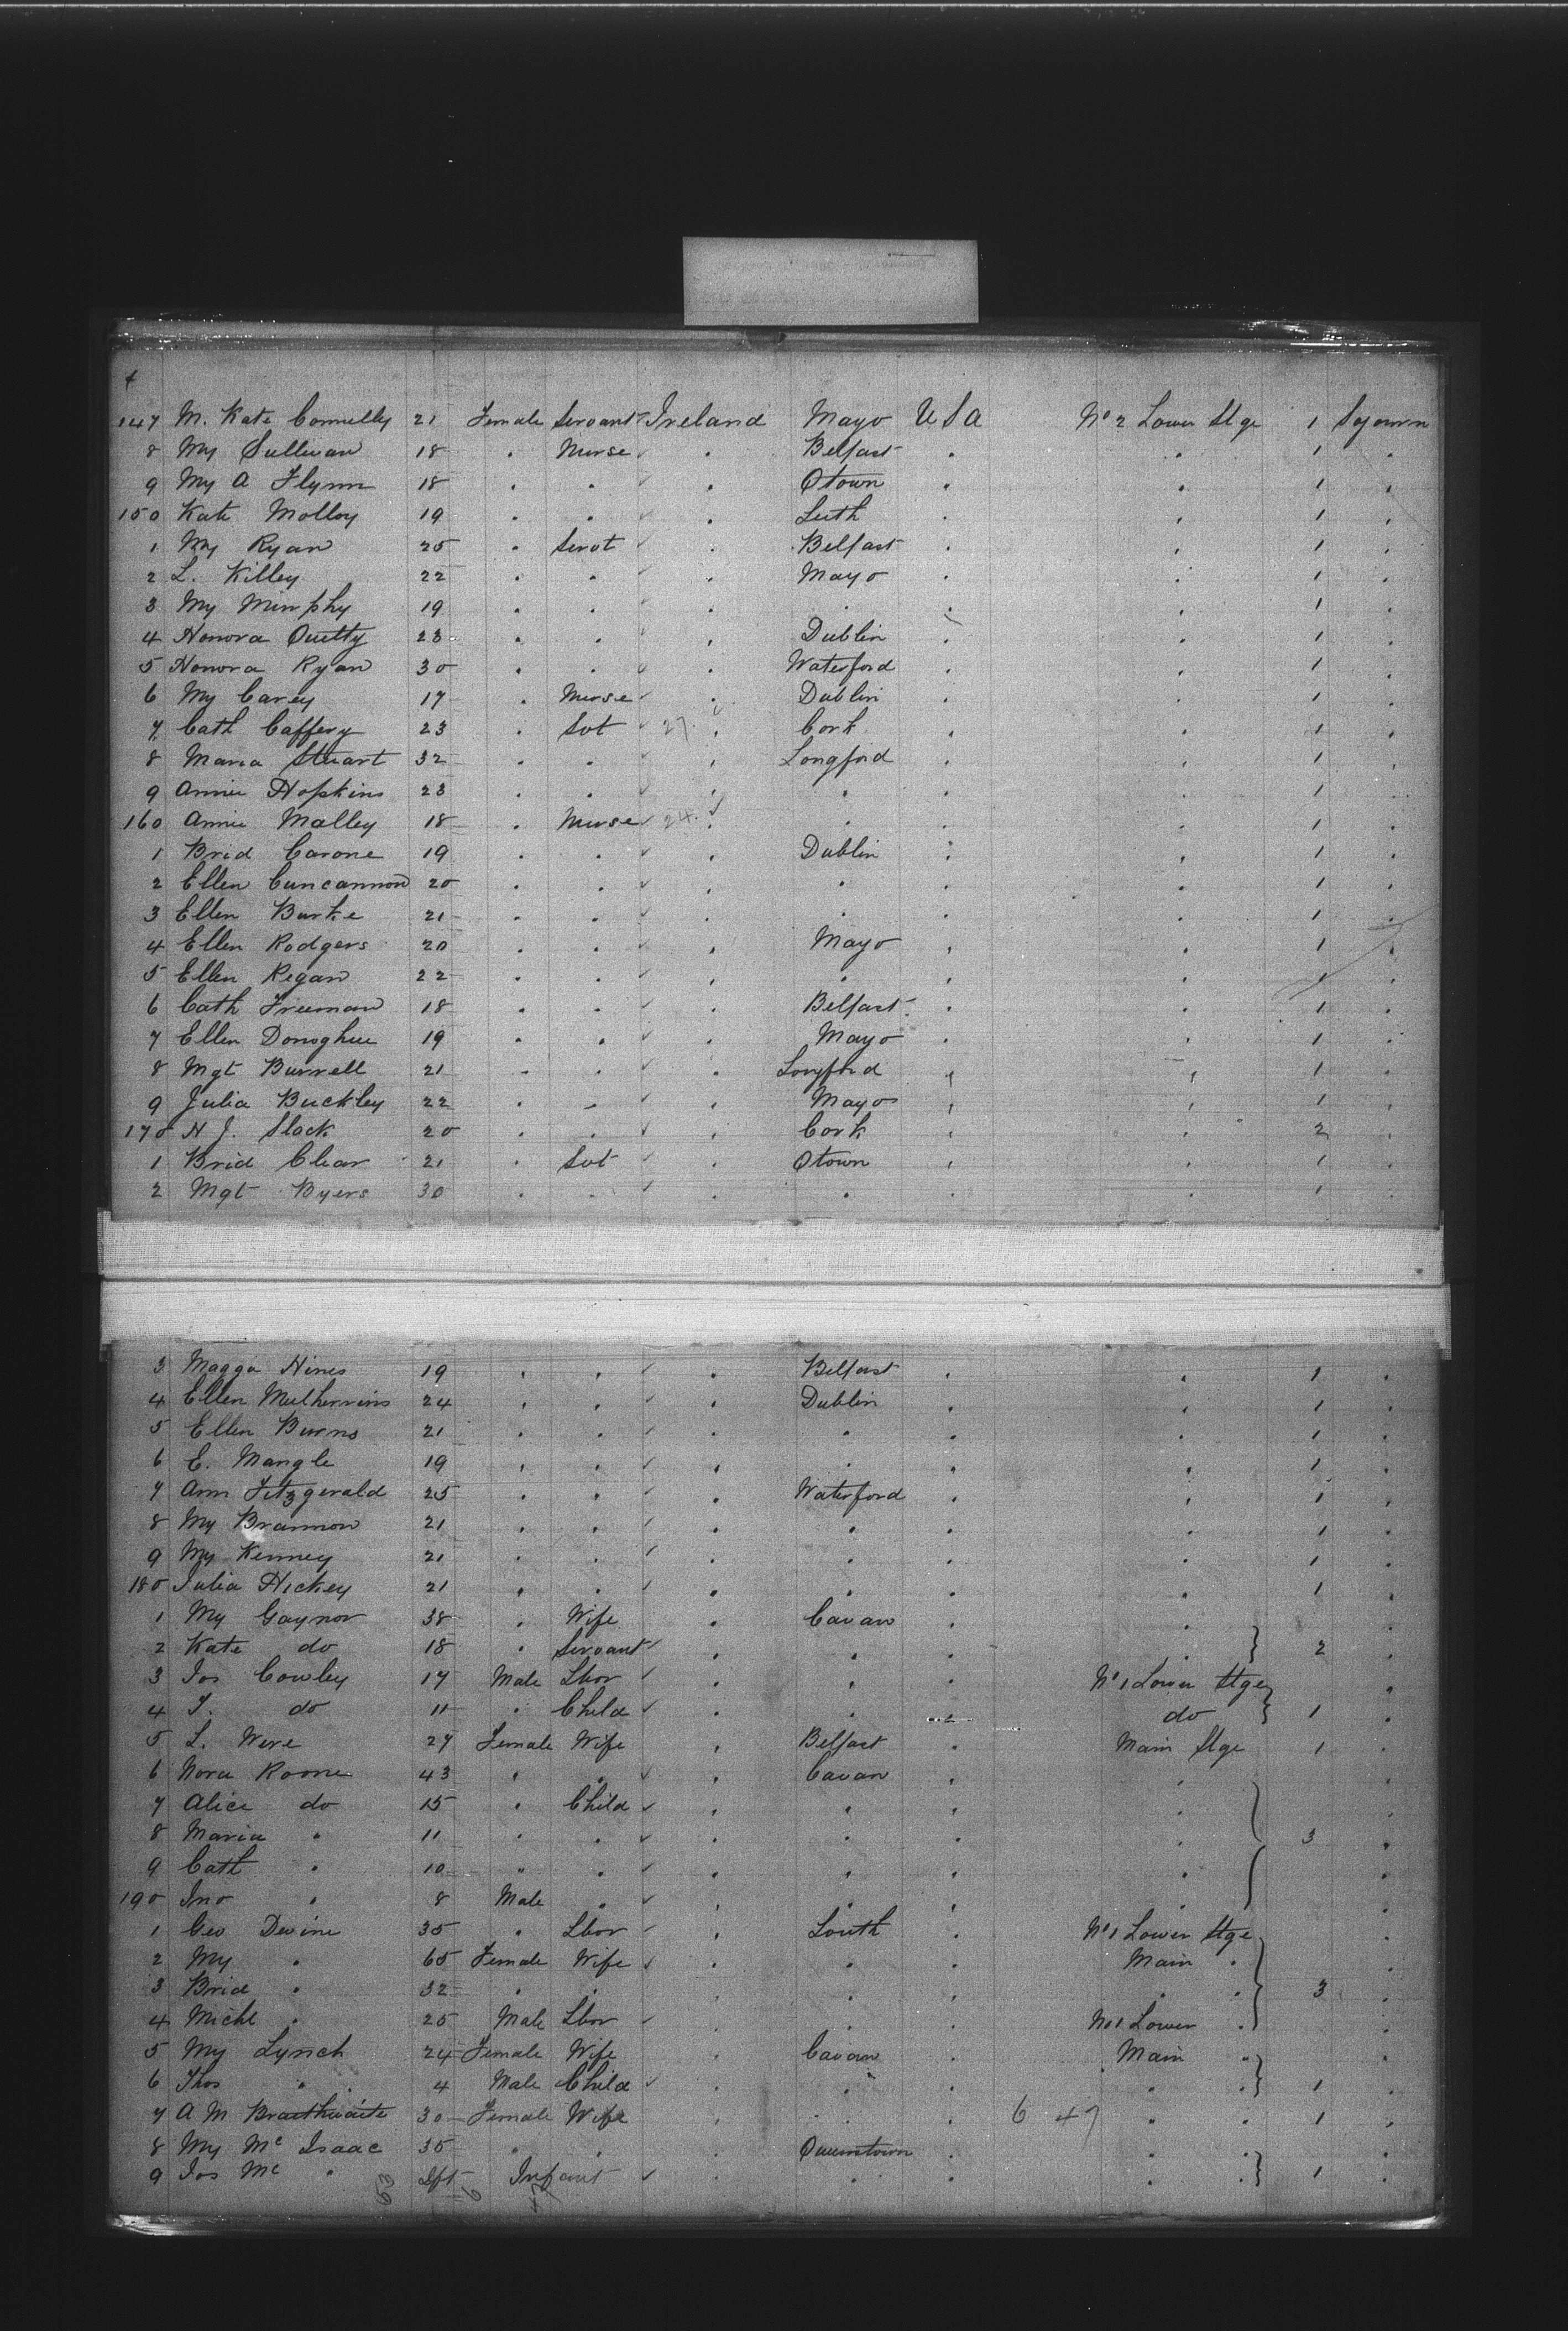 147 M. Kate Connelly 21 Female Servant Ireland Mayo U S A No 2 Lower Stge 1 Sojourn
8 My Sullivan 18 " Nurse " Belfast " " 1 "
9 My A Flynn 18 " " " Qtown " " 1 "
150 Kate Molloy 19 " " " Leith " " 1 "
1 My Ryan 25 " Servt " Belfast " " 1 "
2 L. Killey 22 " " " Mayo " " 1 "
3 My Minphy 19 " " " " " " 1 "
4 Honora Quilty 23 " " " Dublin " " 1 "
5 Honora Ryan 30 " " " Waterford " " 1 "
6 My Carey 17 " Nurse " Dublin " " 1 "
7 Cath Caffery 23 " Svt 27 " Cork " " 1 "
8 Maria Stuart 32 " " " Longford " " 1 "
9 Annie Hopkins 23 " " " " " " 1 "
160 Annie Malley 18 " Nurse 24 " " " " 1 "
1 Brid Carone 19 " " " Dublin " " 1 "
2 Ellen Cuncannon 20 " " " " " " 1 "
3 Ellen Burke 21 " " " " " " 1 "
4 Ellen Rodgers 20 " " " Mayo " " 1 "
5 Ellen Regan 22 " " " " " " 1 "
6 Cath Freeman 18 " " " Belfast " " 1 "
7 Ellen Donoghue 19 " " " Mayo " " 1 "
8 Mgt Burrell 21 " " " Longford " " 1 "
9 Julia Buckley 22 " " " Mayo " " 1 "
170 H J. Slack 20 " " " Cork " " 2 "
1 Brid Clear 21 " Svt " Qtown " " 1 "
2 Mgt Byers 30 " " " " " " 1 "
3 Magga Hines 19 " " " Belfast " " 1 "
4 Ellen 24 " " " Dublin " " 1 "
5 Ellen Burns 21 " " " " " " 1 "
6 E. Mangle 19 " " " " " " 1 "
7 Ann Fitzgerald 25 " " " Waterford " " 1 "
8 My Brannon 21 " " " " " " 1 "
9 My Kenney 21 " " " " " " 1 "
180 Julia Hickey 21 " " " " " " 1 "
1 My Gaynor 38 " Wife " Cavan " " "
2 Kate do 18 " Servant " " " " 2 "
3 Jos Cowley 17 Male Lbor " " " No 1 Lower Stge "
4 T. do 11 " Child " " " do 1 "
5 L. Were 27 Female Wife " Belfast " Main Stge 1 "
6 Nora Roone 43 " " " Cavan " " "
7 Alice do 15 " Child " " " " "
8 Maria " 11 " " " " " " 3 "
9 Cath " 10 " " " " " " "
190 Jno " 8 Male " " " " " "
1 Geo Devine 35 " Lbor " Louth " No 1 Lower Stge "
2 My " 65 Female Wife " " " Main " "
3 Brid " 32 " " " " " " " 3 "
4 Michl " 25 Male Lbor " " " No 1 Lower " "
5 My Lynch 24 Female Wife " Cavan " Main " "
6 Thos " 4 Male Child " " " " " 1 "
7 A M Braithwaite 30 Female Wife " " " 6 47 " " 1 "
8 My Mc Isaac 35 " " " Queenstown " " " "
9 Jos Mc " Inft Infant " " " " " 1 "